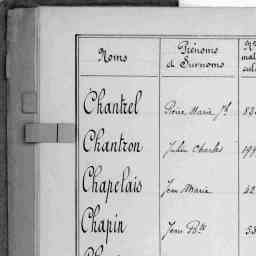 Noms Prénoms et Surnoms
Chantrel Pierre Marie Jh
Chantron Julien Charles
Chapelais Jean Marie 42
Chapin Jean Bte